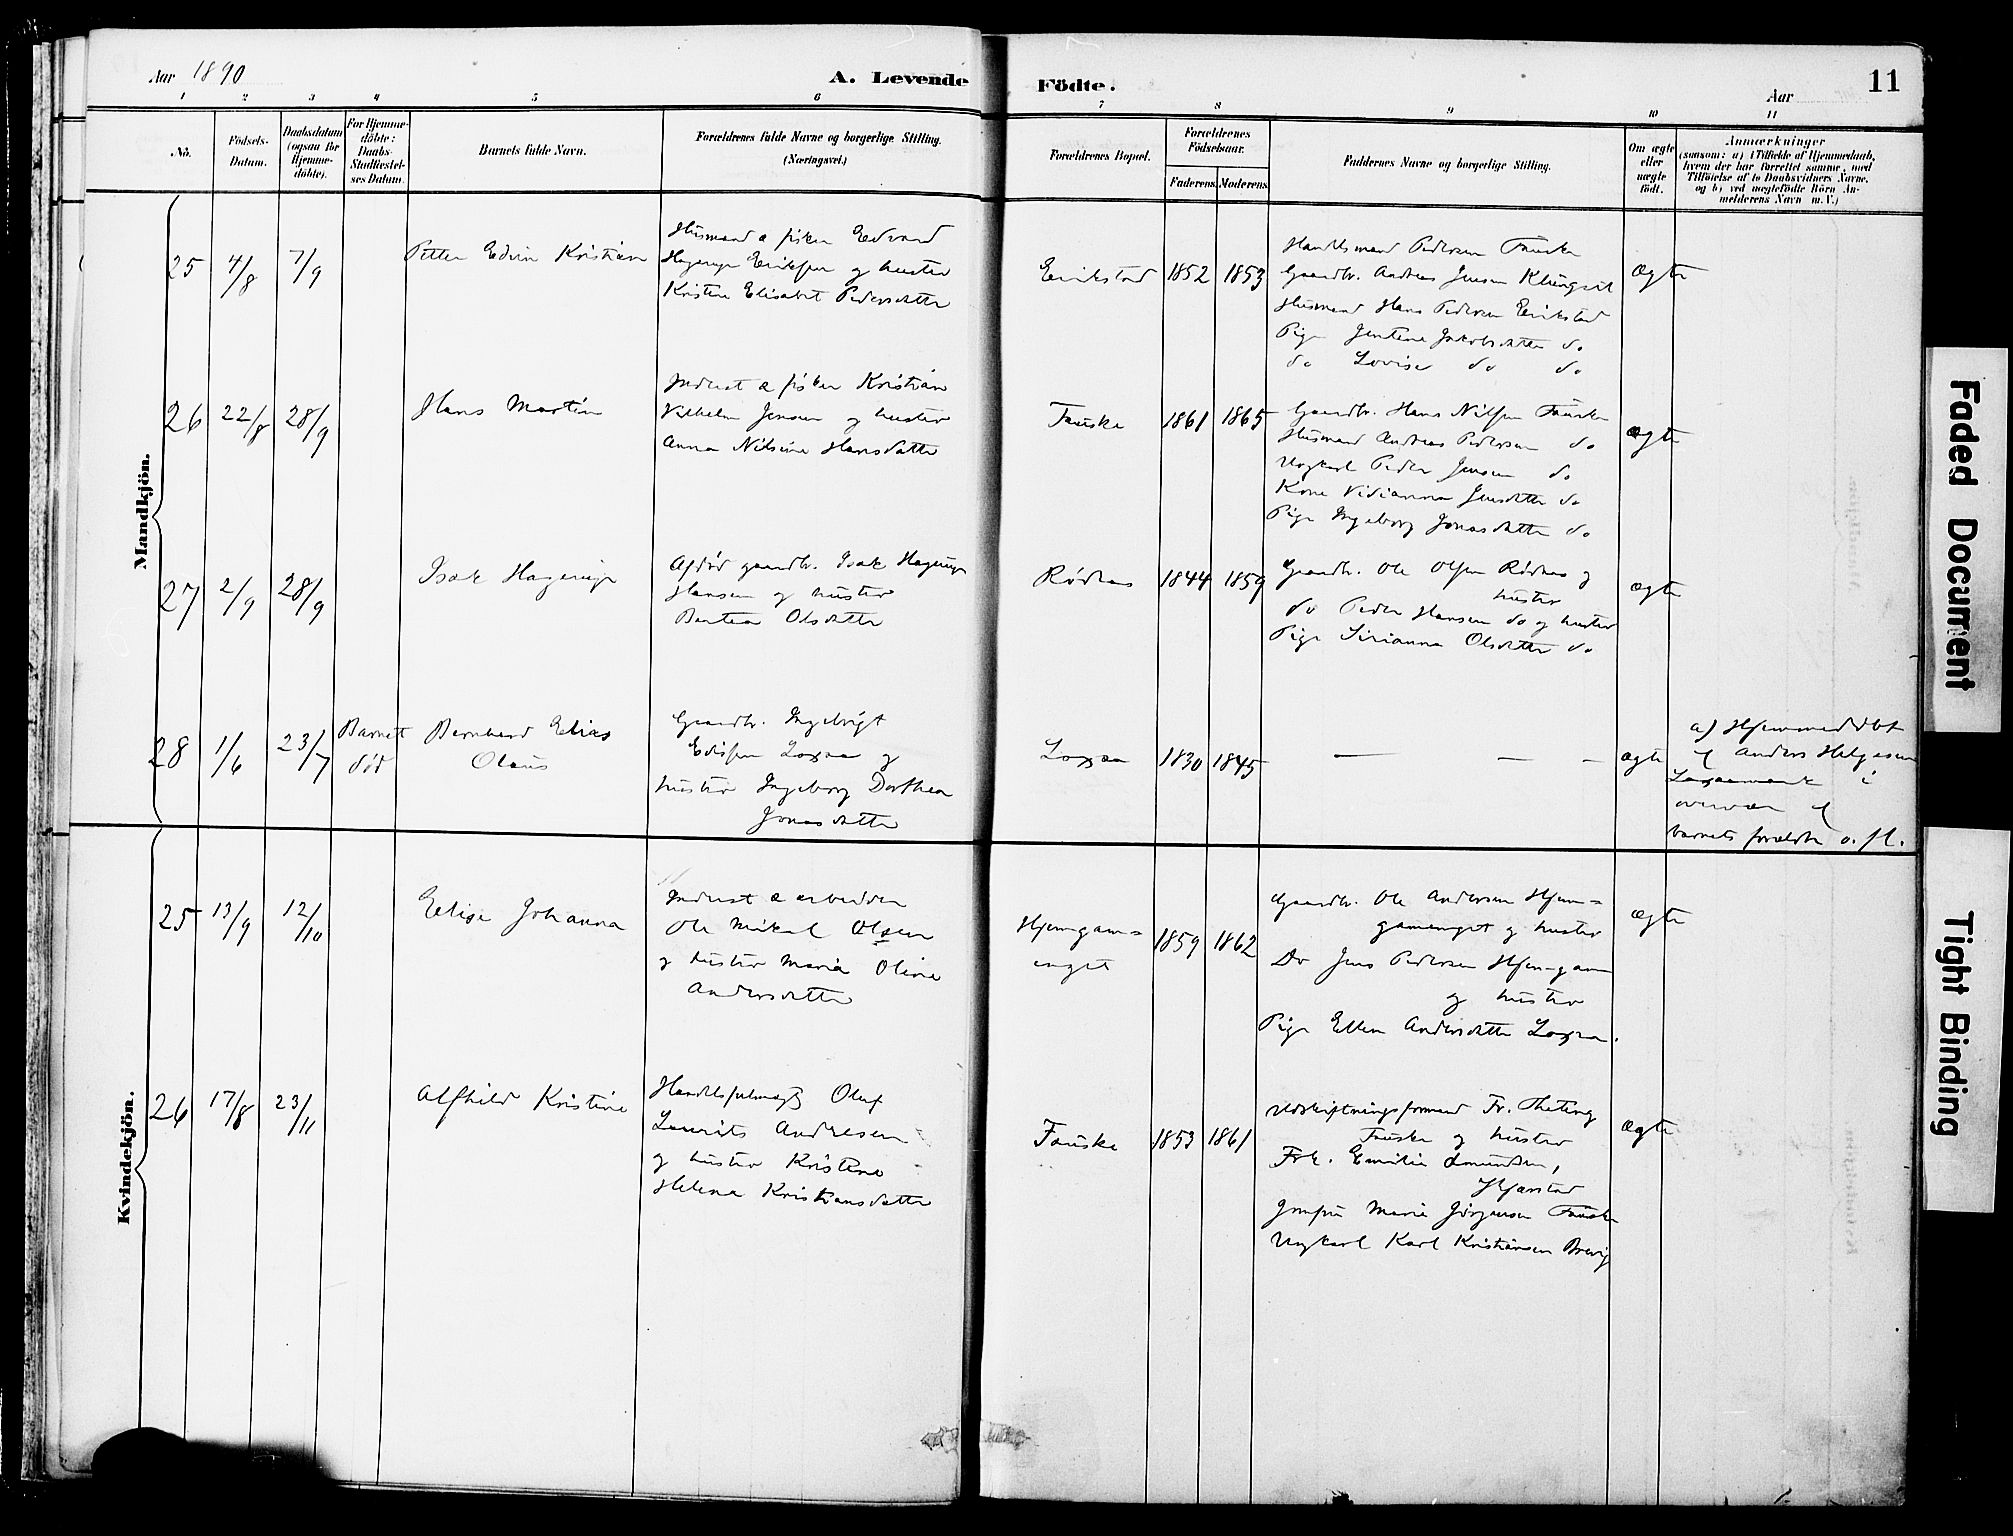 Aar 1890
A. Levende
Födte.
Aar
11
1 2 3 4 5 6 7 8 9 10 11
No.
Födsels-
Datum.
Daabsdatum
(ogsaa for
Hjemme-
döbte).
For Hjemme-
döbte:
Daabs-
Stadfæstel-
ses Datum.
Barnets fulde Navn.
Forældrenes fulde Navne og borgerlige Stilling.
(Næringsvei.)
Forældrenes Bopæl.
Forældrenes
Födselsaar.
Faderens.
Moderens.
Faddernes Navne og borgerlige Stilling.
Om ægte
eller
uægte
födt.
Anmærkninger
(saasom: a) i Tilfælde af Hjemmedaab,
hvem der har forrettet samme, med
Tilföielse af to Daabsvidners Navne,
og b) ved uægtefödte Börn An-
melderens Navn m. V.)
Mandkjön.
25
4/8
7/9
Petter Edvin Kristian
Husmand & fisker Edvard
Hagerup Eriksen og hustru
Kristine Elisabet Pedersdatter
Erikstad
1852
1853
Handelsmand Pedersen Fauske
Gaardbr. Andreas Jensen Klungset
Husmand Hans Pedersen Erikstad
Pige Jentine Jakobsdatter do
do Lovise do do
ægte
26
22/8
28/9
Hans Martin
Inderst & fisker Kristian
Vilhelm Jensen og hustru
Anna Nilsine Hansdatter
Fauske
1861
1865
Gaardbr. Hans Nilsen Fauske
Husmand Andreas Pedersen do
Ungkarl Peder Jensen do
Kone Vidianna Jensdatter do
Pige Ingeborg Jonasdatter do
ægte
27
2/9
28/9
Isak Hagerup
Afdød gaardbr. Isak Hagerup
Hansen og hustru
Bertea Olsdatter
Rödaas
1844
1859
Gaardbr. Ole Olsen Rödaas og
hustru
do Peder Hansen do og hustru
Pige Sirianna Olsdatter do
ægte
28
1/6
23/7
Barnet
död
Bernhard Elias
Olaus
Gaardbr. Ingebrigt
Edisen Laxaa og
hustru Ingeborg Dorthea
Jonasdatter
Laxaa
1830
1845
— — —
ægte
a) Hjemmedöbt
af Anders Helgesen
i
overvær af
barnets forældre o. fl.
Kvindekjön.
25
13/9
12/10
Elise Johanna
Inderst & arbeider
Ole Mikal Olsen
og hustru Maria Oline
Andersdatter
Hjemgam=
enget
1859
1862
Gaardbr. Ole Andersen Hjem=
gamenget og hustru
Do Jens Pedersen Hjemgam
og hustru
Pige Ellen Andersdatter Laxaa.
ægte
26
17/8
23/11
Alfhild Kristine
Handelsfuldmægt. Oluf
Laurits Andresen
og hustru Kristine
Helena Kristiansdatter
Fauske
1853
1861
Udskiftningsformand Fr. Theting
Fauske og hustru
Frk. Emilie Amundsen,
Hjarstad
Marie Jörgensen Fauske
Ungkarl Karl Kristiansen Brevig
ægte
Faded Document
Tight Binding